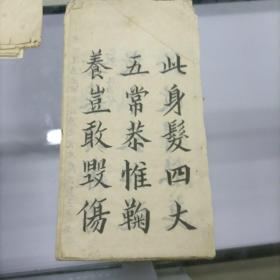 此身髮四大
五常恭惟鞠
養豈敢毀傷